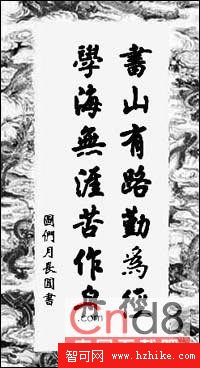 書山有路勤為徑
學海無涯苦作舟
們月長圓書
cnd8
.com
智可网 www.hzhike.com